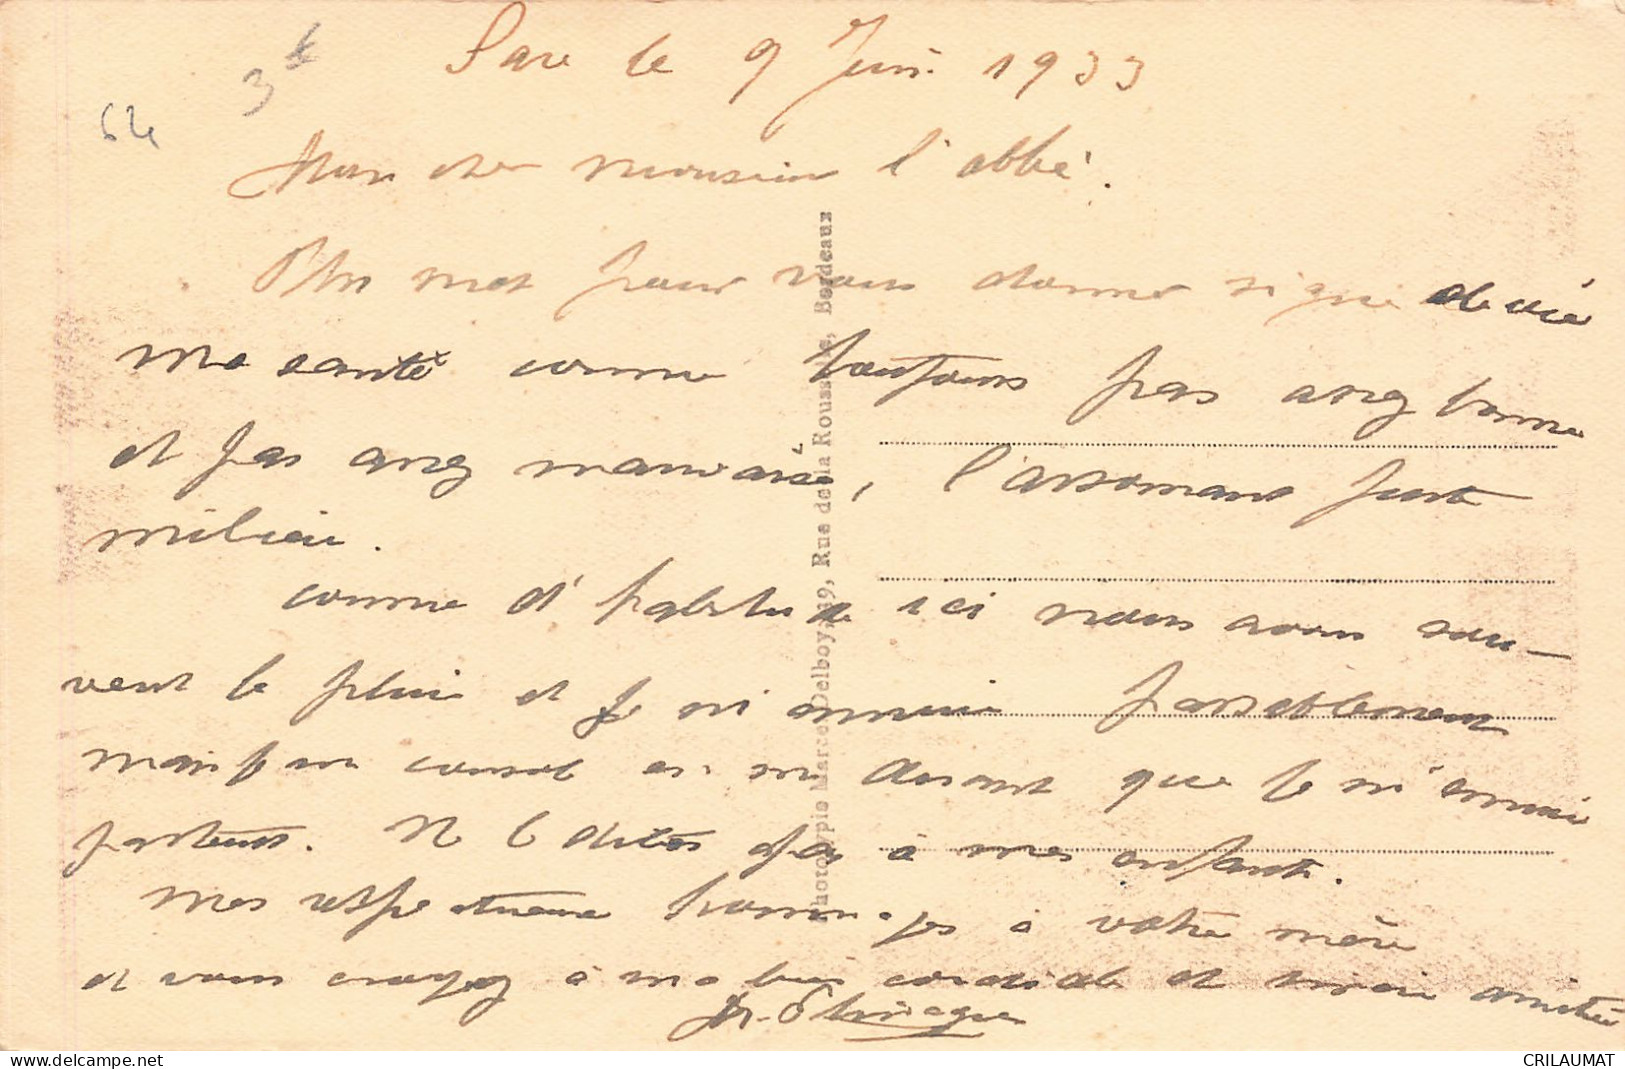 3 f
64
Sare le 9 Juin 1933
Mon cher monsieur l'abbé.
Un mot pour vous donner signe de vie
ma santé comme toujours pas assez bonne
et pas assez mauvaise, l'assomant juste
milieu.
comme d'habitude ici nous avons sou-
vent la pluie et je m'ennuie passablement
mais je me console en me disant que je m'ennuie
partout. Ne le dites pas à mes enfants.
Mes respectueux hommages à votre mère
et vous croyez à ma bien cordiale et amitié
Phototypie Marcel Delboy, 39, Rue de la Rousselle, Bordeaux
delcampe.net
CRILAUMAT